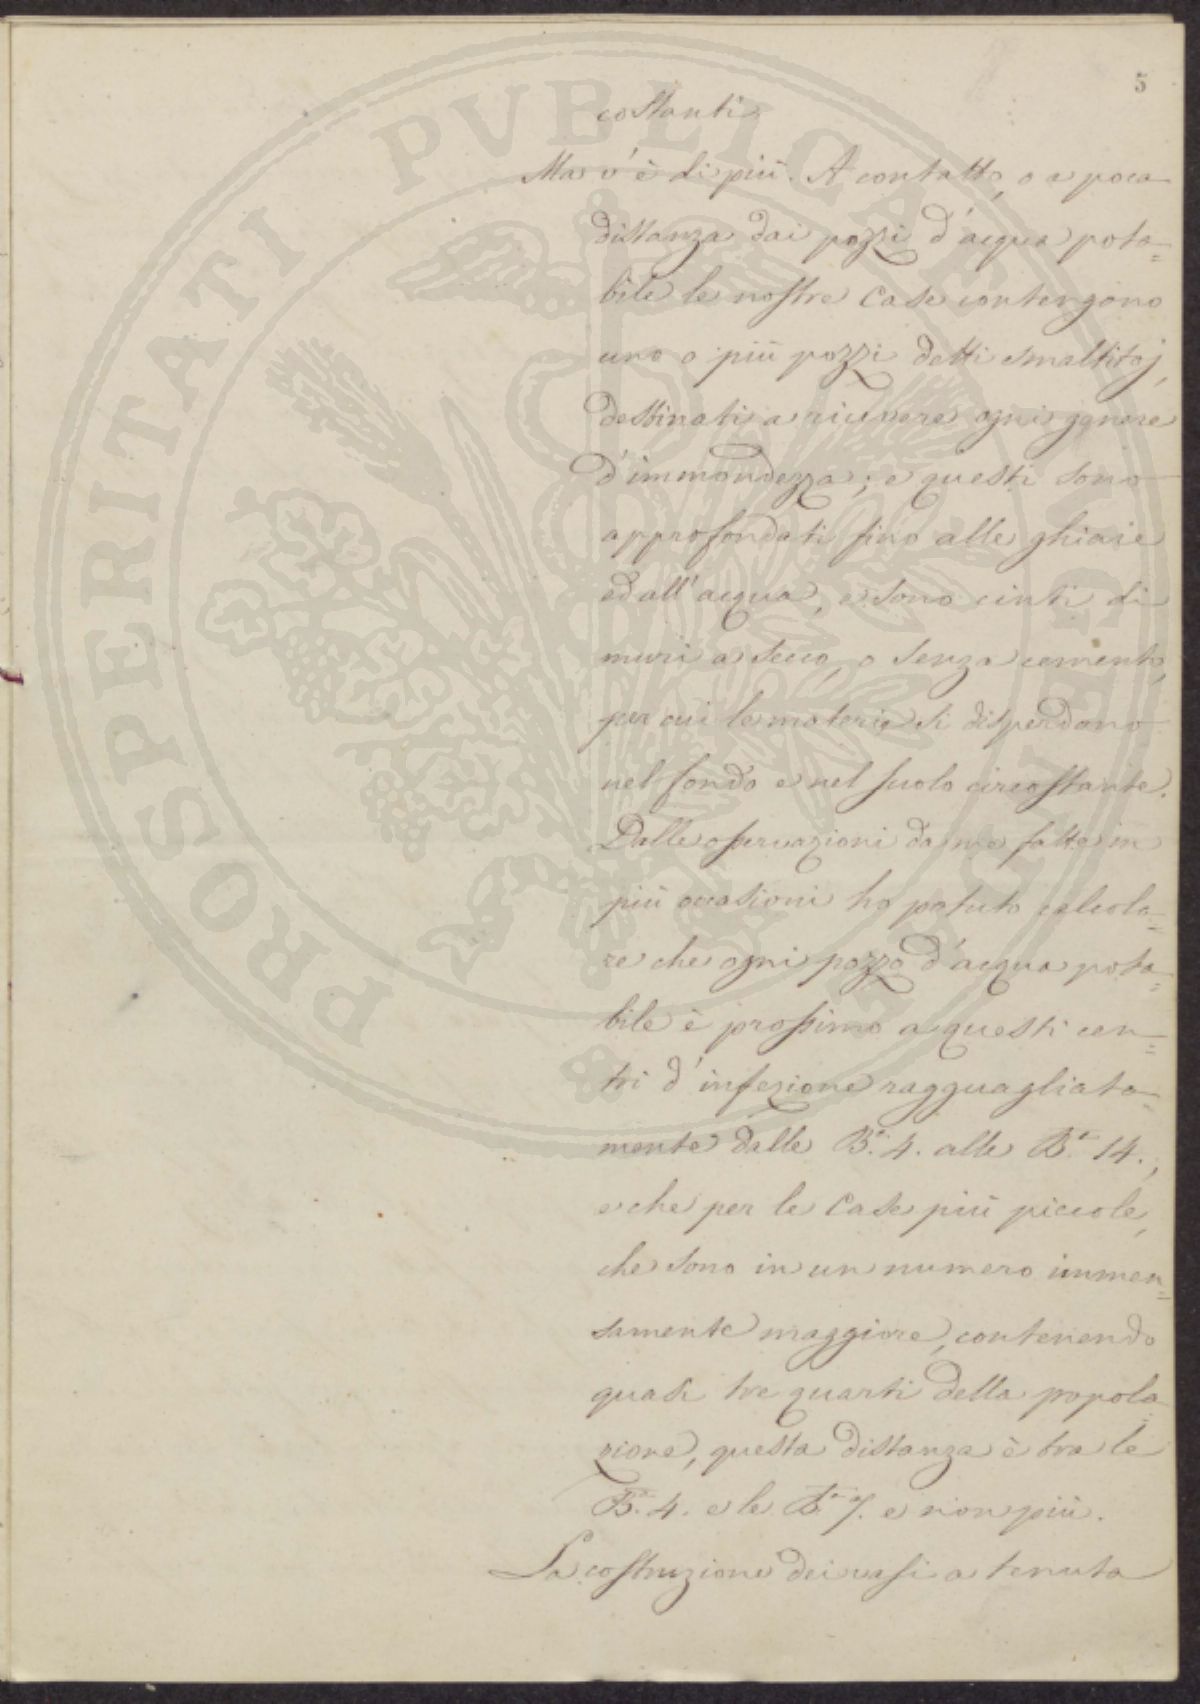 5
costanti.
Ma v'è di più. A contatto, o a poca
distanza dai pozzi d'acqua pota=
bile le nostre Case contengono
uno o più pozzi detti smaltitoj,
destinati a ricevere ogni genere
d'immondezza; e questi sono
approfondati fino alle ghiaie
ed all'acqua, e sono cinti di
muri a secco, o senza cemento,
per cui le materie si disperdano
nel fondo e nel suolo circostante.
Dalle osservazioni da me fatte in
più occasioni ho potuto calcola=
re che ogni pozzo d'acqua pota=
bile è prossimo a questi cen=
tri d'infezione ragguagliata=
mente dalle B.a 4. alle B.a 14.,
e che per le Case più piccole,
che sono in un numero immen=
samente maggiore, contenendo
quasi tre quarti della popola=
zione, questa distanza è tra le
B.a 4. e le B.a 7. e non più.
La costruzione dei vasi a tenuta
PROSPERITATI PVBLICAE